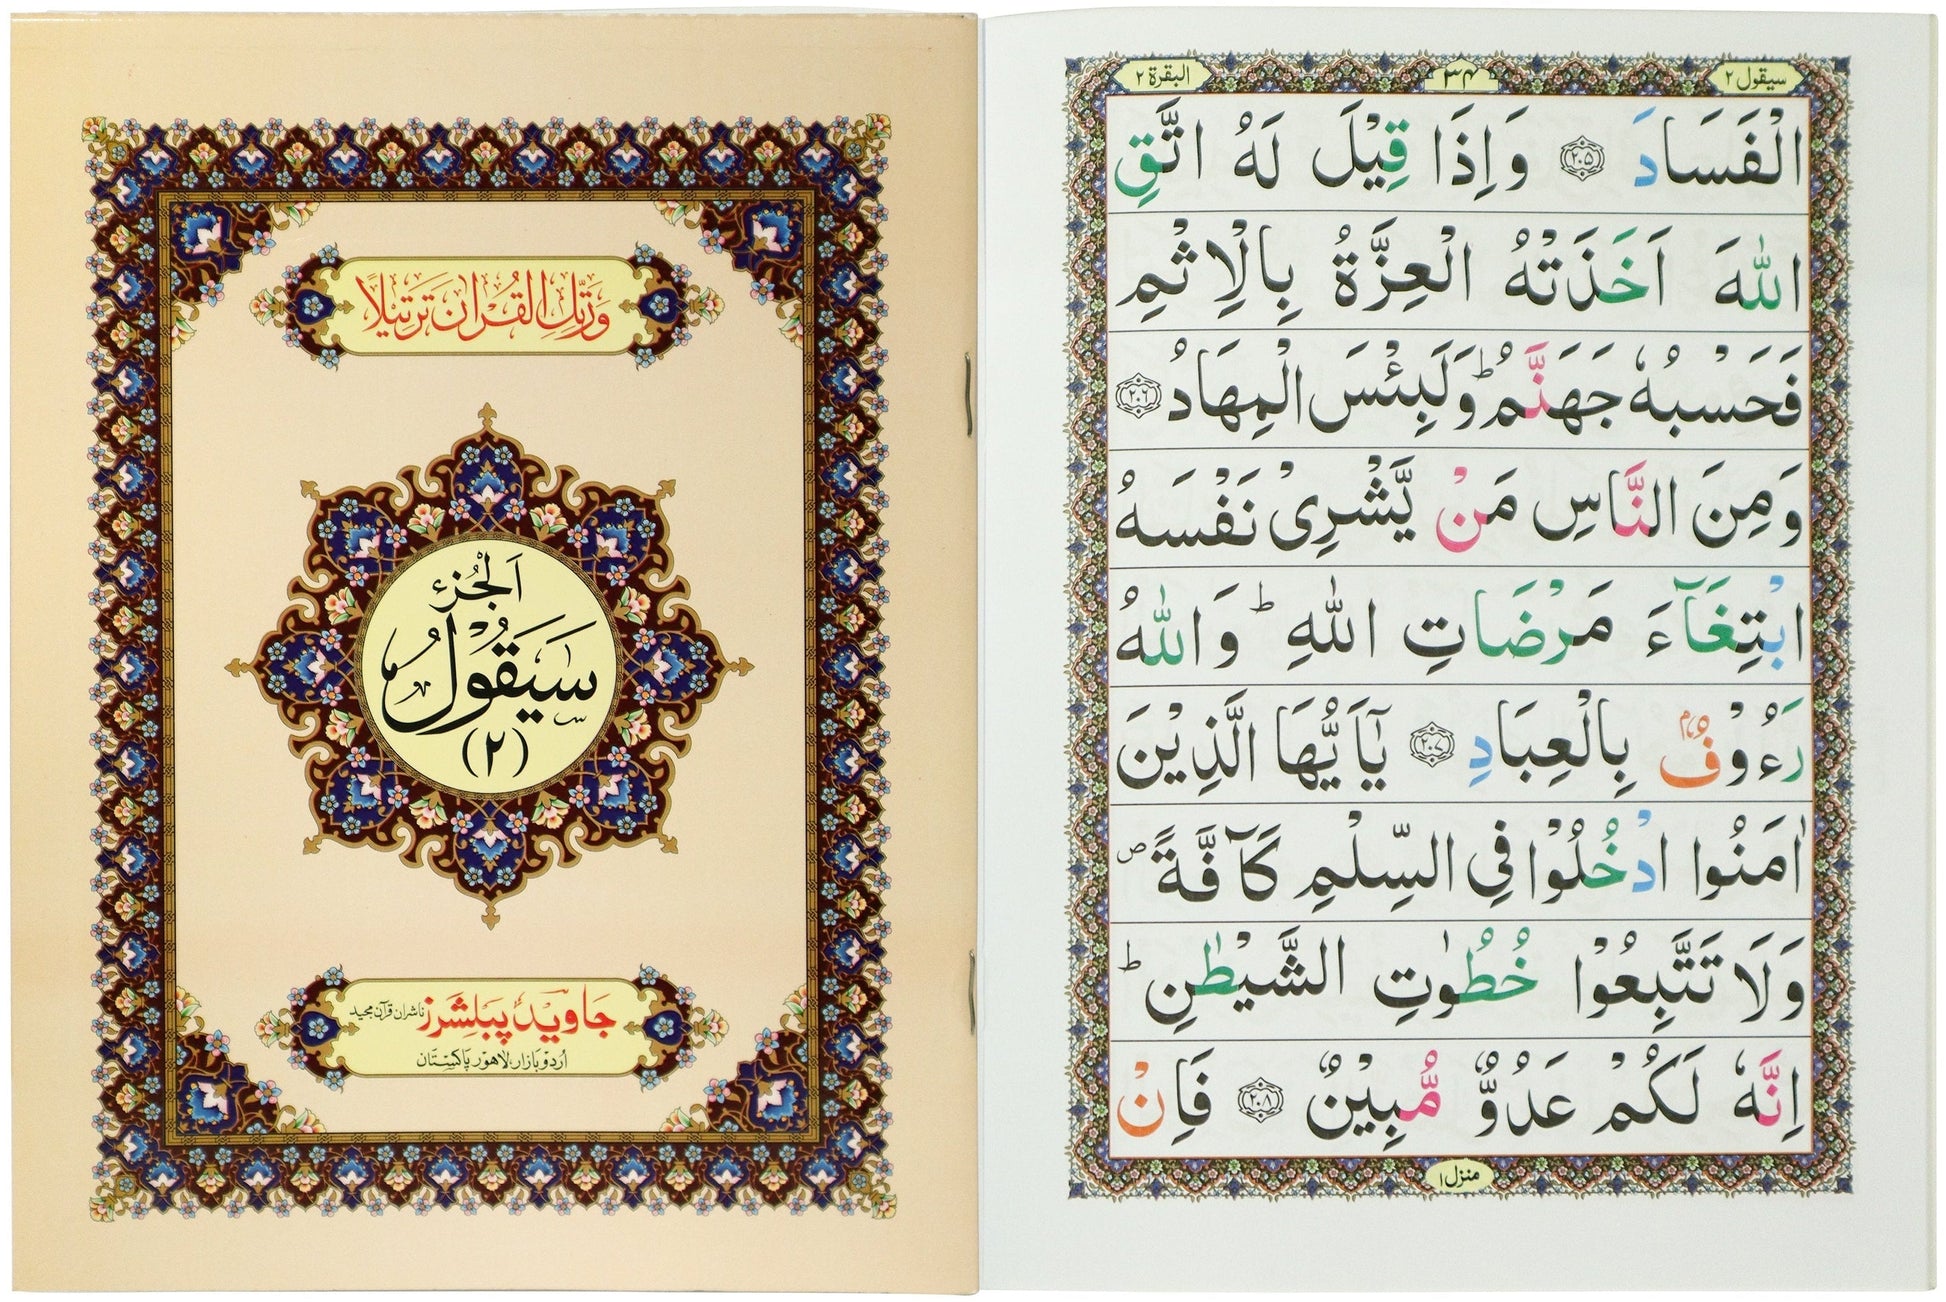 وَرَتِّلِ الْقُرْاٰنَ تَرْتِيْلًا
اَلْجُزْءُ
سَيَقُوْلُ
(۲)
جاوید پبلشرز ناشران قرآن مجید
اُردو بازار، لاہور پاکستان
سيقول ٢ ۳۴ البقرة ٢
الْفَسَادَ ۝٢٠٥ وَاِذَا قِيْلَ لَهُ اتَّقِ
اللّٰهَ اَخَذَتْهُ الْعِزَّةُ بِالْاِثْمِ
فَحَسْبُهٗ جَهَنَّمُ ؕ وَلَبِئْسَ الْمِهَادُ ۝٢٠٦
وَمِنَ النَّاسِ مَنْ يَّشْرِىْ نَفْسَهُ
ابْتِغَآءَ مَرْضَاتِ اللّٰهِ ؕ وَاللّٰهُ
رَءُوْفٌۢ بِالْعِبَادِ ۝٢٠٧ يٰٓاَيُّهَا الَّذِيْنَ
اٰمَنُوا ادْخُلُوْا فِى السِّلْمِ كَآفَّةً ص
وَلَا تَتَّبِعُوْا خُطُوٰتِ الشَّيْطٰنِ ؕ
اِنَّهٗ لَكُمْ عَدُوٌّ مُّبِيْنٌ ۝٢٠٨ فَاِنْ
منزل ١